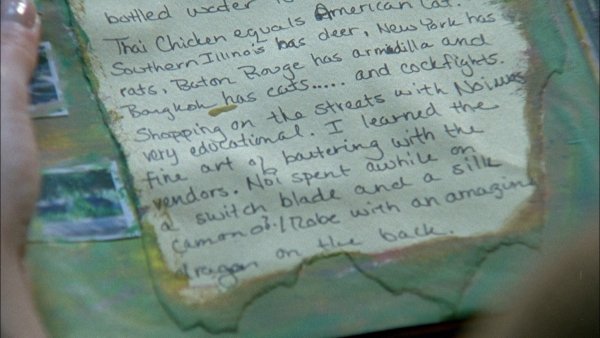 bottled water
Thai Chicken equals American Cat.
Southern Illinois has deer, New York has
rats, Baton Rouge has armidilla and
Bangkok has cats..... and cockfights.
Shopping on the streets with Noi was
very educational. I learned the
fine art of bartering with the
vendors. Noi spent awhile on
a switch blade and a silk
camono?/Robe with an amazing
dragon on the back.